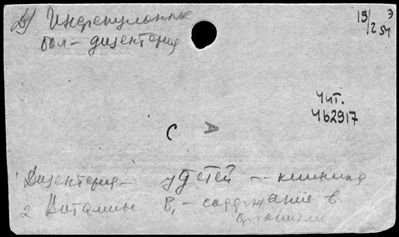 в) Инфекционные
бол - дизентерия
19/2 54
Э
Чит.
462917
С А
Дизентерия - у детей - клиника
2 Витамины В₁ - содержание в
организме